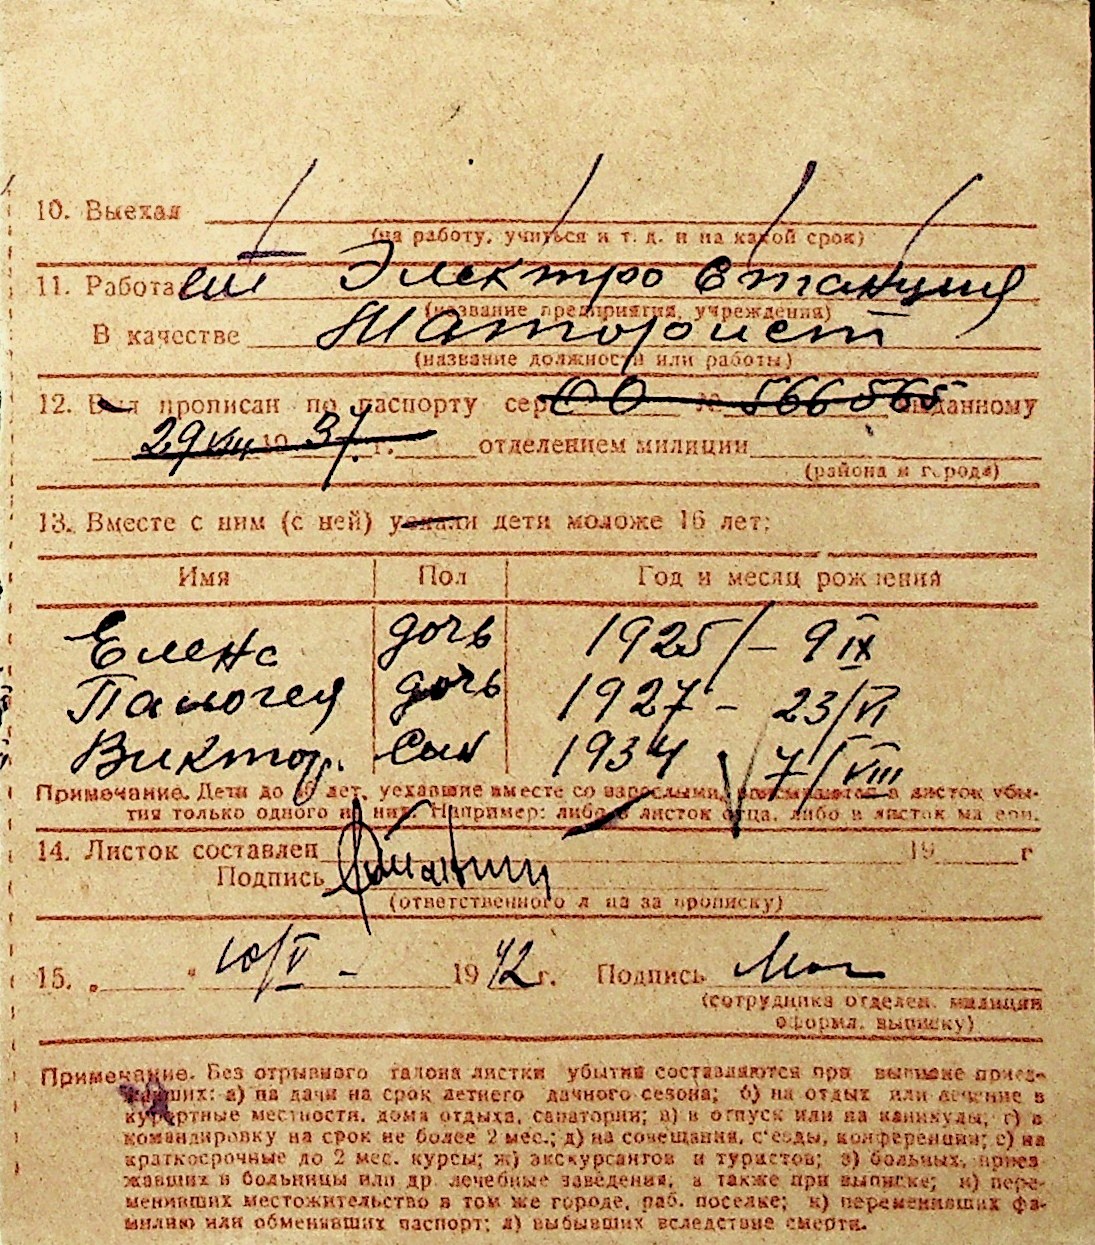 10. Выехал
(на работу, учиться и т. д. и на какой срок)
11. Работает Электро Станция
(название предприятия, учреждения)
В качестве
(название должности или работы)
12. Был прописан по паспорту сер. СО № 566565 выданному
29 VIII 1937 г. отделением милиции
(района и города)
13. Вместе с ним (с ней) уехали дети моложе 16 лет:
Имя Пол Год и месяц рождения
Елена дочь 1925/ - 9 IX
дочь 1927 - 23/VI
Виктор. Сын 1934 7/VIII
Примечание. Дети до 16 лет, уехавшие вместе со взрослыми, вписываются в листок убы-
тия только одного из них. Например: либо в листок отца, либо в листок матери.
14. Листок составлен 19 г
Подпись
(ответственного лица за прописку)
15. „ " 10/V - 1942 г. Подпись
(сотрудника отделен. милиции
оформл. выписку)
Примечание. Без отрывного талона листки убытия составляются при выписке приез-
жавших: а) на дачи на срок летнего дачного сезона; б) на отдых или лечение в
курортные местности, дома отдыха, санатории; в) в отпуск или на каникулы; г) в
командировку на срок не более 2 мес.; д) на совещания, с'езды, конференции; е) на
краткосрочные до 2 мес. курсы; ж) экскурсантов и туристов; з) больных, приез-
жавших в больницы или др. лечебные заведения, а также при выписке; и) пере-
менивших местожительство в том же городе, раб. поселке; к) переменивших фа-
милию или обменявших паспорт; л) выбывших вследствие смерти.